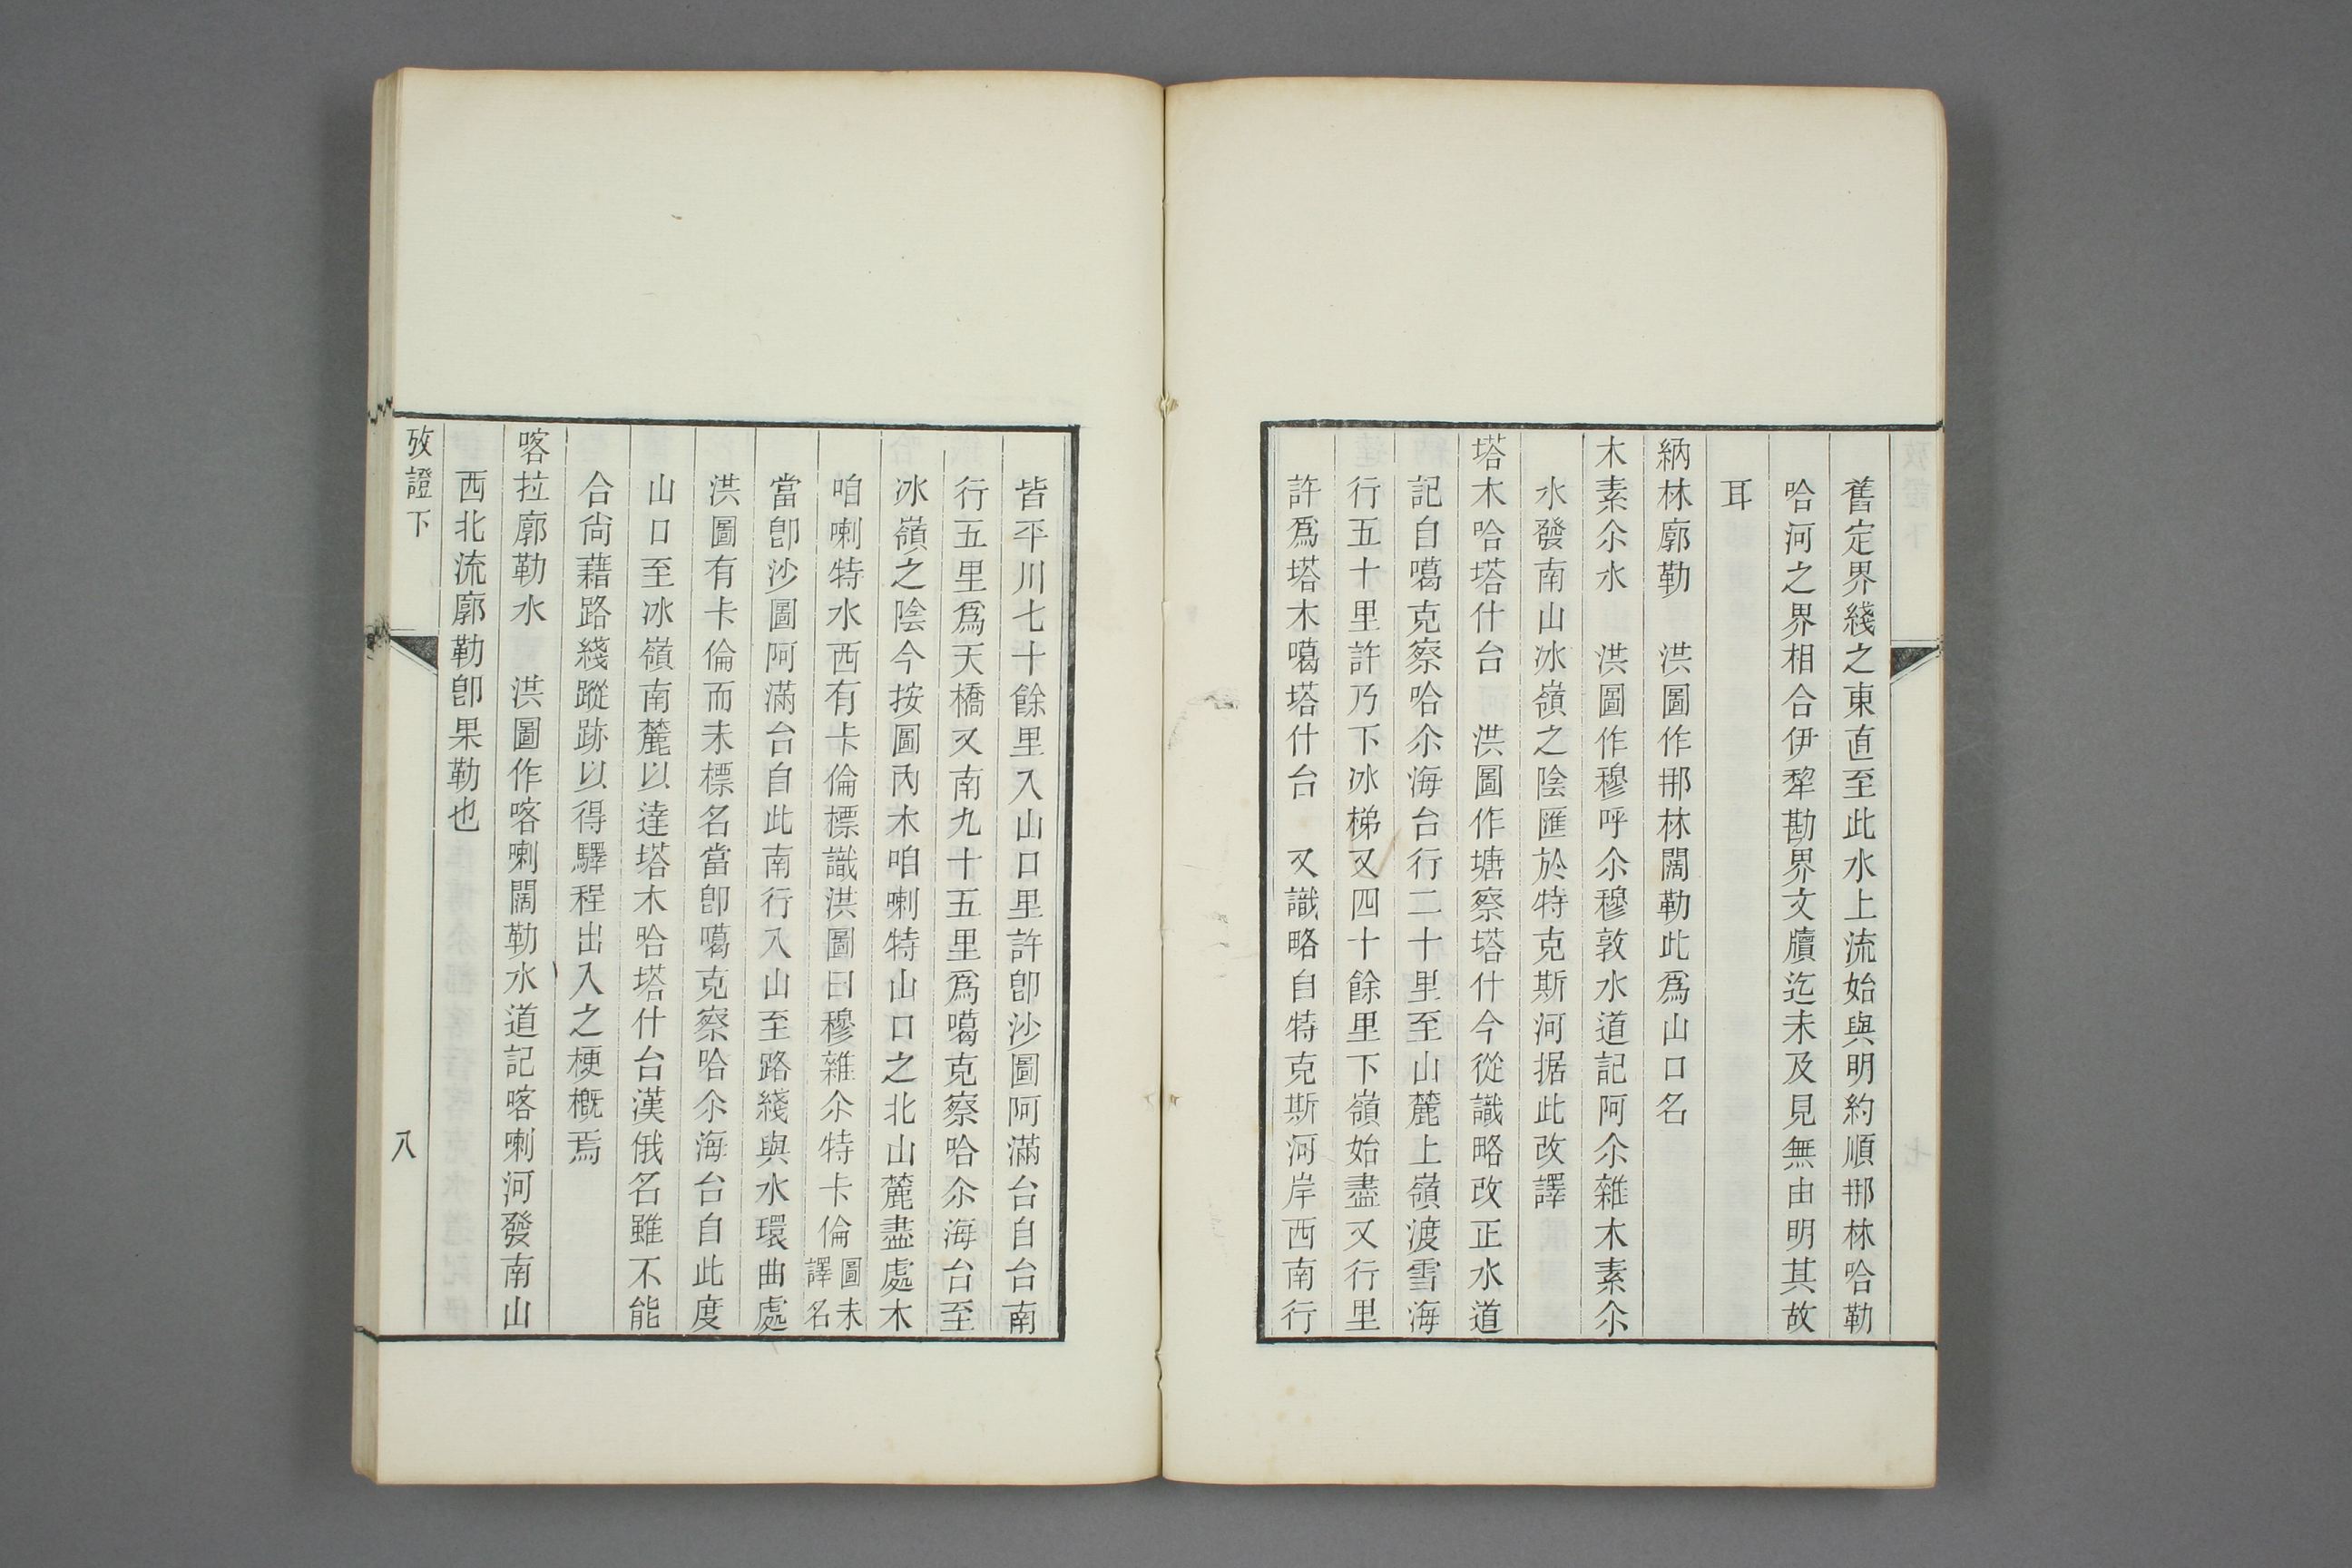 舊定界綫之東直至此水上流始與明約順𨙻林哈勒
哈河之界相合伊犂勘界文牘迄未及見無由明其故
耳
納林廓勒　洪圖作𨙻林闊勒此爲山口名
木素尒水　洪圖作穆呼尒穆敦水道記阿尒雜木素尒
水發南山冰嶺之陰匯於特克斯河据此改譯
塔木哈塔什台　洪圖作塘察塔什今從識略改正水道
記自噶克察哈尒海台行二十里至山麓上嶺渡雪海
行五十里許乃下冰梯又四十餘里下嶺始盡又行里
許爲塔木噶塔什台　又識略自特克斯河岸西南行
皆平川七十餘里入山口里許卽沙圖阿滿台自台南
行五里爲天橋又南九十五里爲噶克察哈尒海台至
冰嶺之陰今按圖內木咱喇特山口之北山麓盡處木
咱喇特水西有卡倫標識洪圖曰穆雜尒特卡倫圖未譯名
當卽沙圖阿滿台自此南行入山至路綫與水環曲處
洪圖有卡倫而未標名當卽噶克察哈尒海台自此度
山口至冰嶺南麓以達塔木哈塔什台漢俄名雖不能
合尙藉路綫蹤跡以得驛程出入之梗槪焉
喀拉廓勒水　洪圖作喀喇闊勒水道記喀喇河發南山
西北流廓勒卽果勒也
攷證下
八